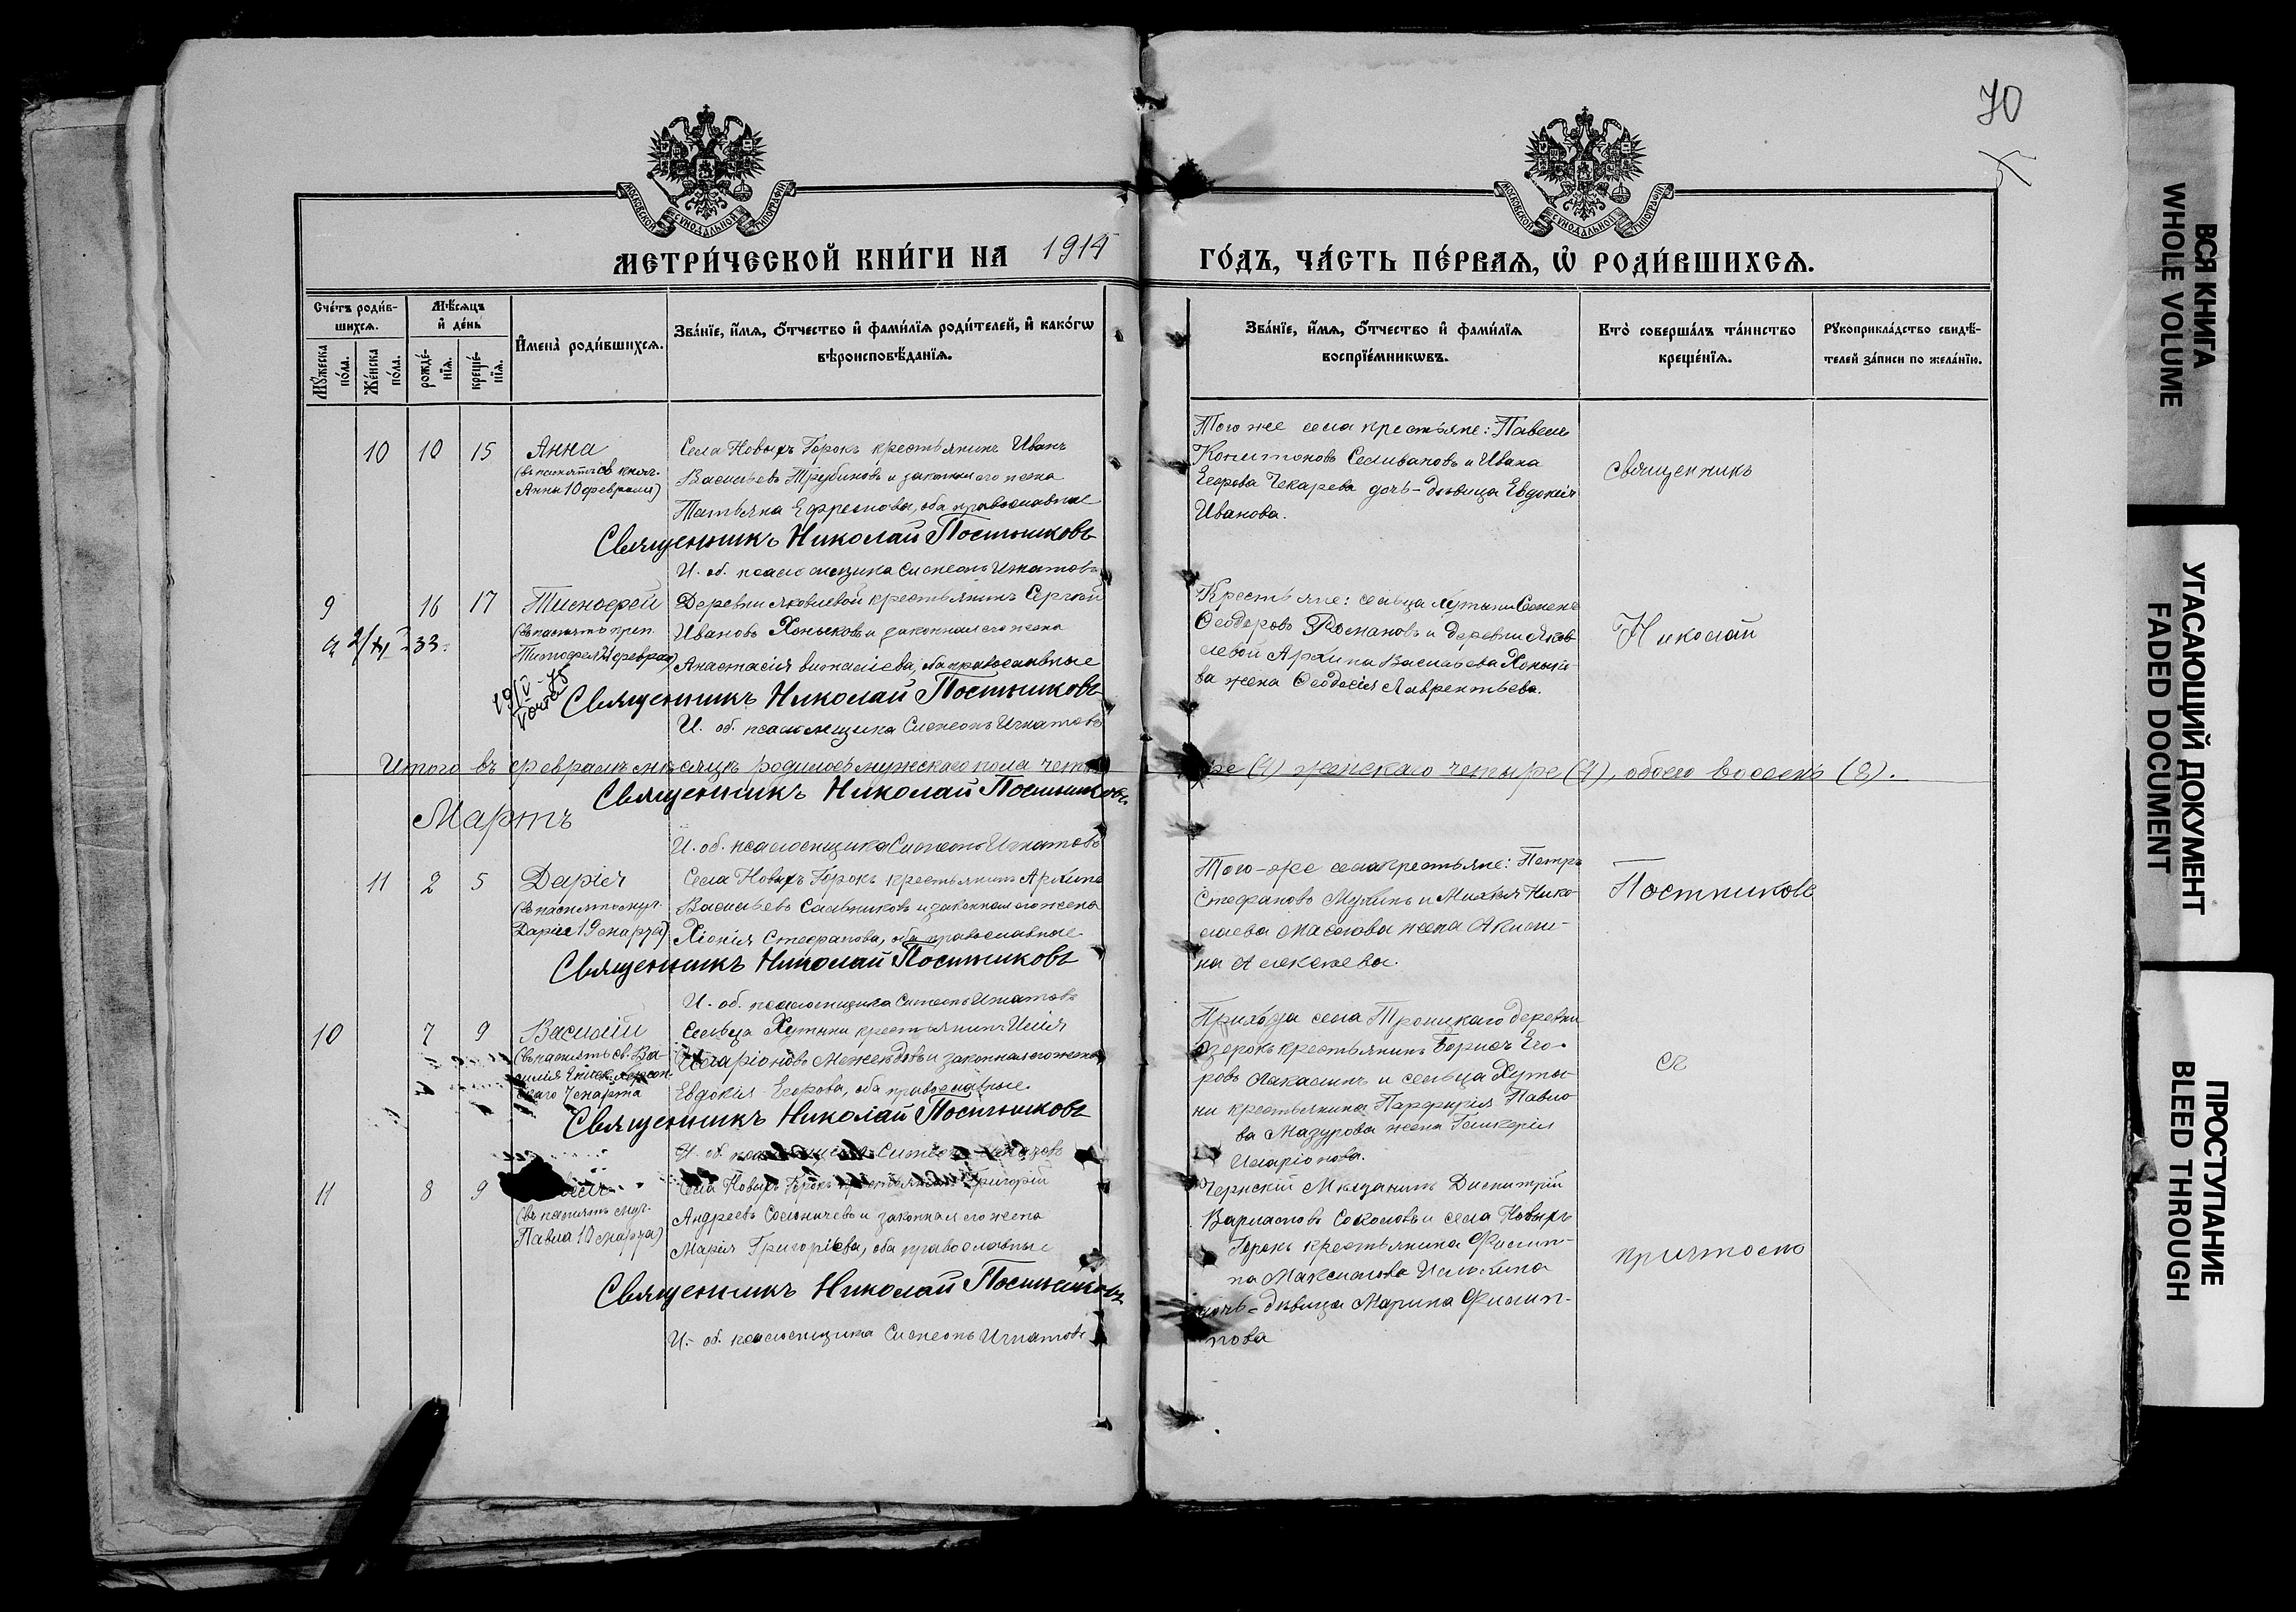 70
МОСКОВСКОЙ СѴНОДАЛЬНОЙ ТИПОГРАФІИ
МОСКОВСКОЙ СѴНОДАЛЬНОЙ ТИПОГРАФІИ
МЕТРИ́ЧЕСКОЙ КНИ́ГИ НА 1914 ГО́ДЪ, ЧА́СТЬ ПЕ́РВАЯ, Ѽ РОДИ́ВШИХСЯ.
Сче́тъ роди́в-
шихся.
Мѣ́сяцъ
и҆ де́нь
Мꙋ́жеска
по́ла.
Же́нска
по́ла.
рожде́-
нїя.
креще́-
нїя.
И҆мена̀ роди́вшихся.
Зва́нїе, и҆́мя, ѻ҆́тчество и҆ фами́лїя роди́телей, и҆ како́гѡ
вѣроисповѣ́данїя.
Зва́нїе, и҆́мя, ѻ҆́тчество и҆ фами́лїя
воспрїе́мникѡвъ.
Кто̀ соверша́лъ та́инство
креще́нїя.
Рꙋкоприкла́дство свидѣ́-
телей за́писи по жела́нїю.
10 10 15 Анна
(въ память св. княг.
Анны 10 февраля)
Села Новыхъ Горокъ крестьянинъ Иванъ
Васильевъ Трубиновъ и законная его жена
Татьяна Ефремова, оба православные
Священникъ Николай Постниковъ
И. об. псаломщика Симеонъ Игнатовъ
Того же села крестьяне: Павелъ
Капитоновъ Селивановъ и Ивана
Егорова Чекарева дочь-дѣвица Евдокія
Иванова.
священникъ
9 16 17 Тимофей
(въ память преп.
Тимофея 21 февраля)
33
Деревни Яковлевой крестьянинъ Сергѣй
Ивановъ Хоньковъ и законная его жена
Анастасія, оба православные
Священникъ Николай Постниковъ
И. об. псаломщика Симеонъ Игнатовъ
Крестьяне: сельца Хутыни Семенъ
Ѳеодоровъ Романовъ и деревни Яков-
левой Архипа Васильева Хонько-
ва жена Ѳеодосія Лаврентьева.
Николай
Итого въ февралѣ мѣсяцѣ родилось мужскаго пола четы
ре (4) женскаго четыре (4), обоего восемь (8).
Священникъ Николай Постниковъ
Мартъ
И. об. псаломщика Симеонъ Игнатовъ
11 2 5 Дарія
(въ память муч.
Даріи 19 марта)
Села Новыхъ Горокъ крестьянинъ Архипъ
Васильевъ Сальниковъ и законная его жена
Хіонія Стефанова, оба православные
Священникъ Николай Постниковъ
И. об. псаломщика Симеонъ Игнатовъ
Того-же села крестьяне: Петръ
Стефановъ Мухинъ и Михея Нико-
лаева Маслова жена Акили-
на Алексѣева.
Постниковъ
10 7 9 Василій
(въ память св. Ва-
силія Еписк. Херсон-
скаго 7 марта
Сельца Хутыни крестьянинъ Илія
Иларіоновъ и законная его жена
Евдокія Егорова, оба православные.
Священникъ Николай Постниковъ
И. об.
Прихода села Троицкаго деревни
Озерокъ крестьянинъ Борисъ Его-
ровъ Лакалинъ и сельца Хуты-
ни крестьянина Парфирія Павло-
ва Мазурова жена Гликерія
Иларіонова.
съ
11 8 9
(въ память муч.
Павла 10 марта)
Села Новыхъ Горокъ крестьянинъ Григорій
Андреевъ и законная его жена
Марія Григоріева, оба православные
Священникъ Николай Постниковъ
И. об. псаломщика Симеонъ Игнатовъ
Чернскій Мѣщанинъ Димитрій
Варламовъ Соколовъ и села Новыхъ
Горокъ крестьянина Филип-
па Максимова
дочь-дѣвица Марина Филип-
пова
причтомъ
ВСЯ КНИГА
WHOLE VOLUME
УГАСАЮЩИЙ ДОКУМЕНТ
FADED DOCUMENT
ПРОСТУПАНИЕ
BLEED THROUGH